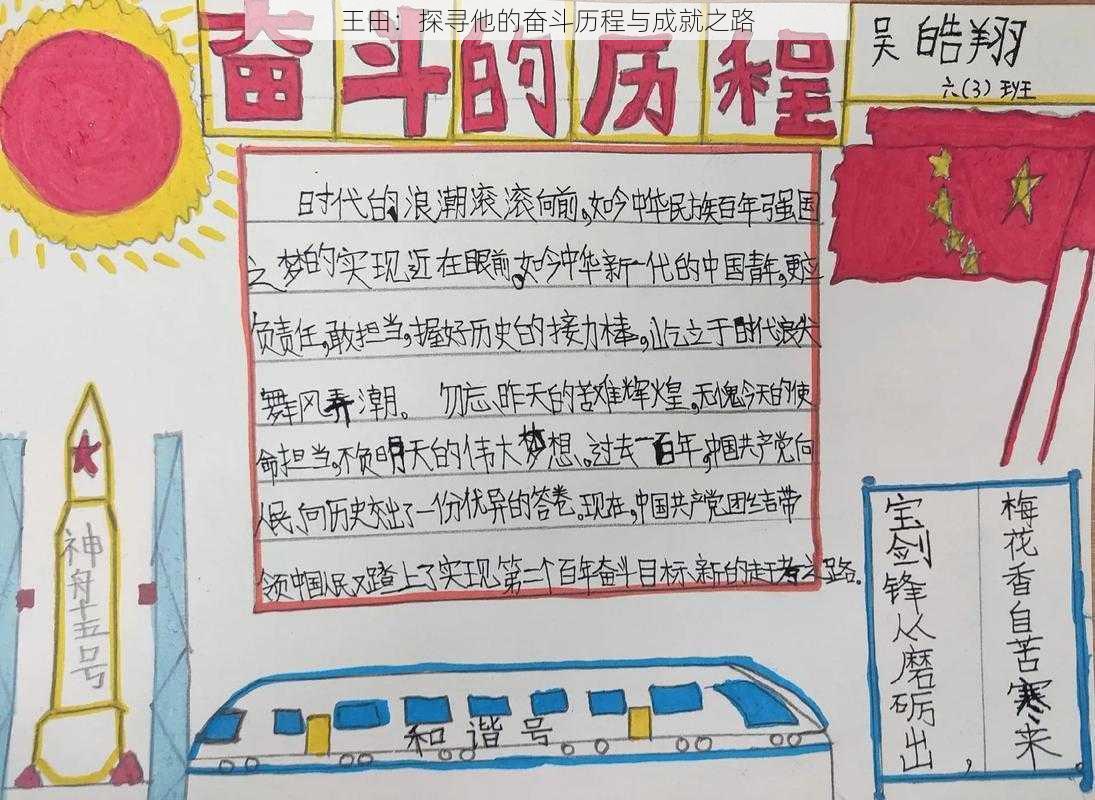 王田：探寻他的奋斗历程与成就之路
奋斗的历程
吴皓翔
六(3)班
时代的浪潮滚滚向前,如今中华民族百年强国
之梦的实现近在眼前,如今中华新一代的中国青年,更应
负责任,敢担当,握好历史的接力棒,屹立于时代浪尖
舞风弄潮。勿忘昨天的苦难辉煌,无愧今天的使
命担当,不负明天的伟大梦想。过去一百年,中国共产党向
人民、向历史交出了一份优异的答卷。现在,中国共产党团结带
领中国人民又踏上了实现第二个百年奋斗目标新的赶考之路。
神舟十五号
和谐号
梅花香自苦寒来
宝剑锋从磨砺出,